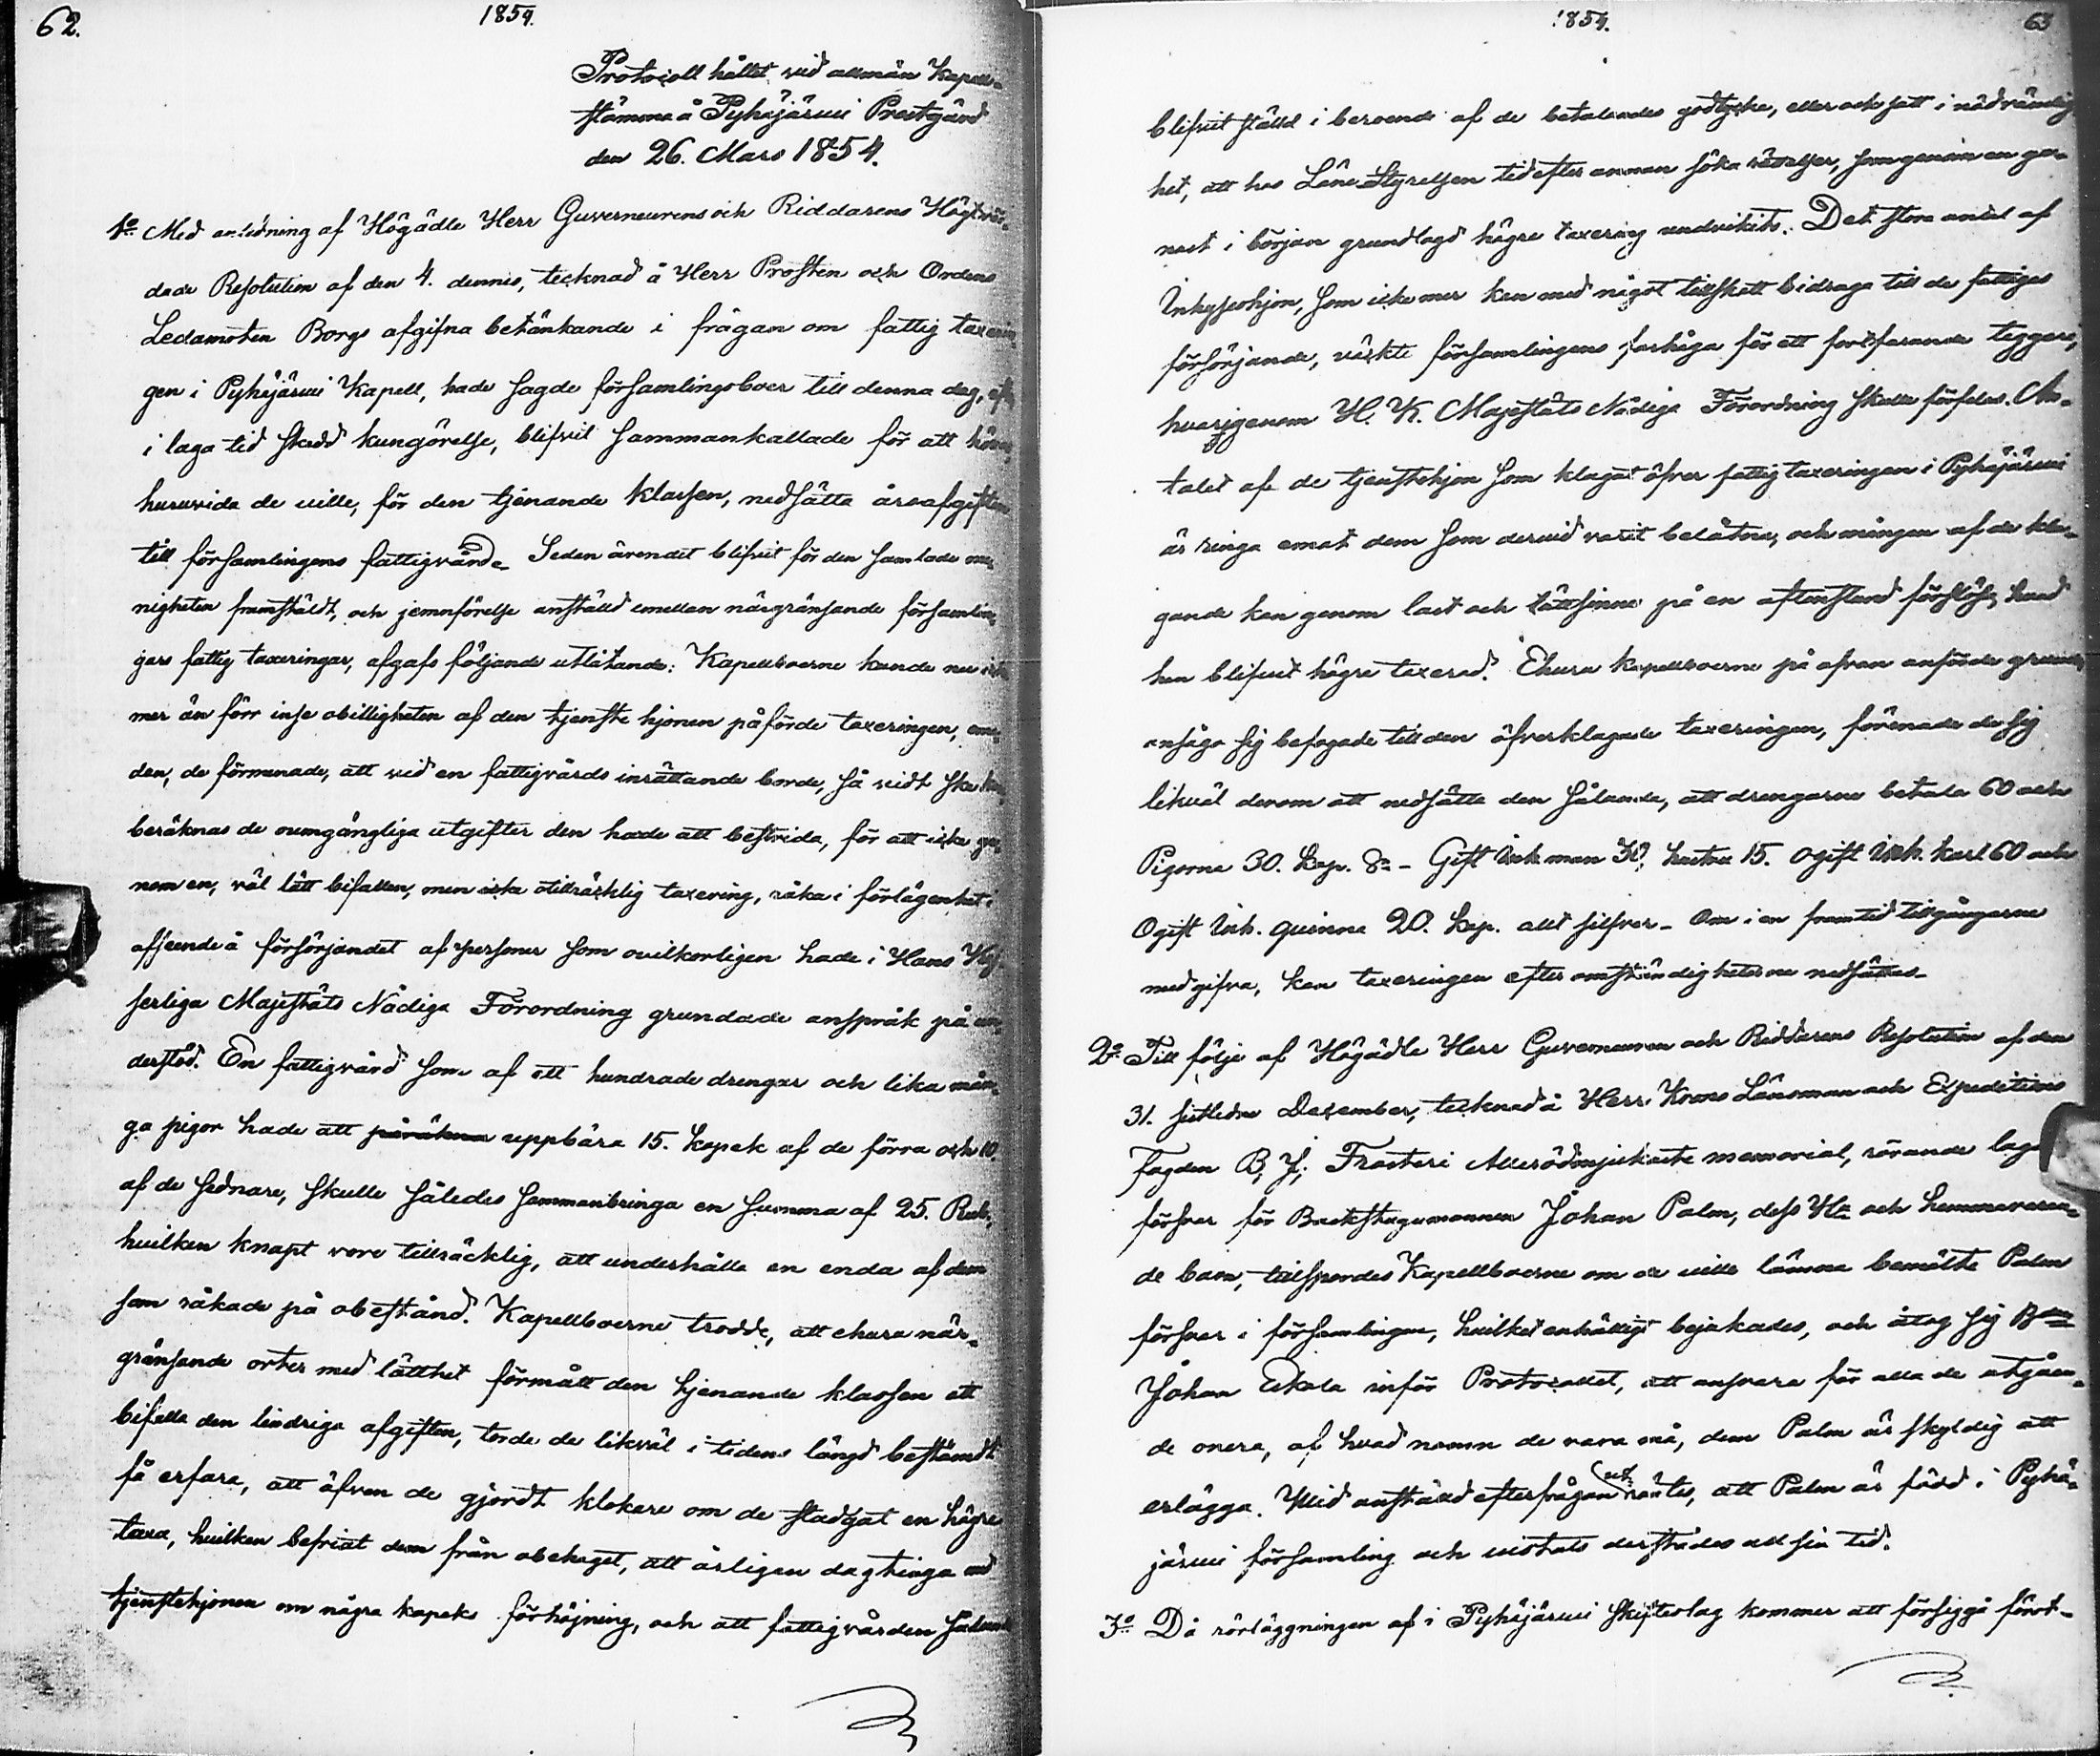 62.
1854.
Protocoll hållet vid allmän Kapell-
stämma å Pyhäjärvi Prestgård
den 26. Mars 1854.
1o Med anledning af Högädle Herr Guverneurens och Riddarens Högtvör-
dade Resolution af den 4. dennes, tecknad å Herr Prosten och Ordens
Ledamoten Borgs afgifna betänkande i frågan om fattig taxerin
gen i Pyhäjärvi Kapell, hade sagde församlingsboer till denna dag, efter
i laga tid skedd kungörelse, blifvit sammankallade för att höras,
huruvida de ville, för den tjenande klassen, nedsätta årsafgiften
till församlingens fattigvård. Sedan ärendet blifvit för den samlade me-
nigheten framstäldt, och jemnförelse anställd emellan närgränsande församlin-
gars fattig taxeringar, afgafs följande utlåtande: Kapellboerne kunde nu icke
mer än förr inse obilligheten af den tjenste hjonen påförde taxeringen, eme-
dan, de förmenade, att vid en fattigvårds inrättande borde, så vidt ske kan,
beräknas de oumgängliga utgifter den hade att bestrida, för att icke ge-
nom en, väl lätt bifallen, men icke otillräcklig taxering, råka i förlägenhet i
afseende å försörjandet af personer som ovilkorligen hade i Hans Kej-
serliga Majestäts Nådiga Förordning grundade anspråk på un-
derstöd. En fattigvård som af ett hundrade drengar och lika mån-
ga pigor hade att påräkna uppbära 15. kopek af de förra och 10.
af de sednare, skulle således sammanbringa en summa af 25. Rub.
hvilken knapt vore tillräcklig, att underhålla en enda af dem
som råkade på obestånd. Kapellboerne trodde, att ehuru när-
gränsande orter med lätthet förmått den tjenande klassen att
bifalla den lindriga afgiften, torde de likväl i tidens längd bestämdt
få erfara, att äfven de gjordt klokare om de stadgat en högre
taxa, hvilken befriat dem från obehaget, att årligen dagtinga med
tjenstehjonen om några kopeks förhöjning, och att fattigvården sålunda
1854.
63
blifvit ställd i beroende af de betalandes godtycke, eller och satt i nödvändig
het, att hos Läne Styrelsen tid efter annan söka rättelser, som genom en ge-
nast i början grundlagd högre taxering undvikits. Det stora antal af
Inhyseshjon, som icke mer kan med något tillskott bidraga till de fattigas
försörjande, väckte församlingens farhåga för att fortfarande tiggeri,
hvarigenom H. K. Majestäts Nådiga Förordning skulle förfelas. An-
talet af de tjenstehjon som klagat öfver fattig taxeringen i Pyhäjärvi
är ringa emot dem som dervid varit belåtna, och mången af de kla-
gande kan genom last och lättsinne på en aftonstund förslösa hvad
han blifvit högre taxerad. Ehuru kapellboerne på ofvan anförde grunder,
ansågo sig befogade till den öfverklagade taxeringen, förenade de sig
likväl derom att nedsätta den sålunda, att drengarne betala 60 och
Pigorna 30. kop. Sr - Gift inh. man 30, hustru 15. ogift inh. karl 60 och
Ogift inh. qvinna 20. kop. allt silfver - Om i en framtid tillgångarne
medgifva, kan taxeringen efter omständigheterna nedsättas.
2o Till följe af Högädle Herr Guverneuren och Riddarens Resolution af den
31. sistledne December, tecknad å Herr Krons Länsman och Expeditions
Fogden B. J. Frosteri Allerödmjukaste memorial, rörande laga
försvar för Backstugumannen Johan Palm, dess Hu och hemmavaran-
de barn, tillspordes Kapellboerne om de ville lämna bemälte Palm
försvar i församlingen, hvilket enhälligt bejakades, och åtog sig Bon
Johan Eskola inför Protocollet, att ansvara för alla de utgåen-
de onera, af hvad namn de vara må, dem Palm är skyldig att
erlägga. Wid anställd efterfrågan utröntes, att Palm är född i Pyhä-
järvi församling och vistats derstädes all sin tid.
3o Då rörläggningen af i Pyhäjärvi Skifteslag kommer att försiggå föret-